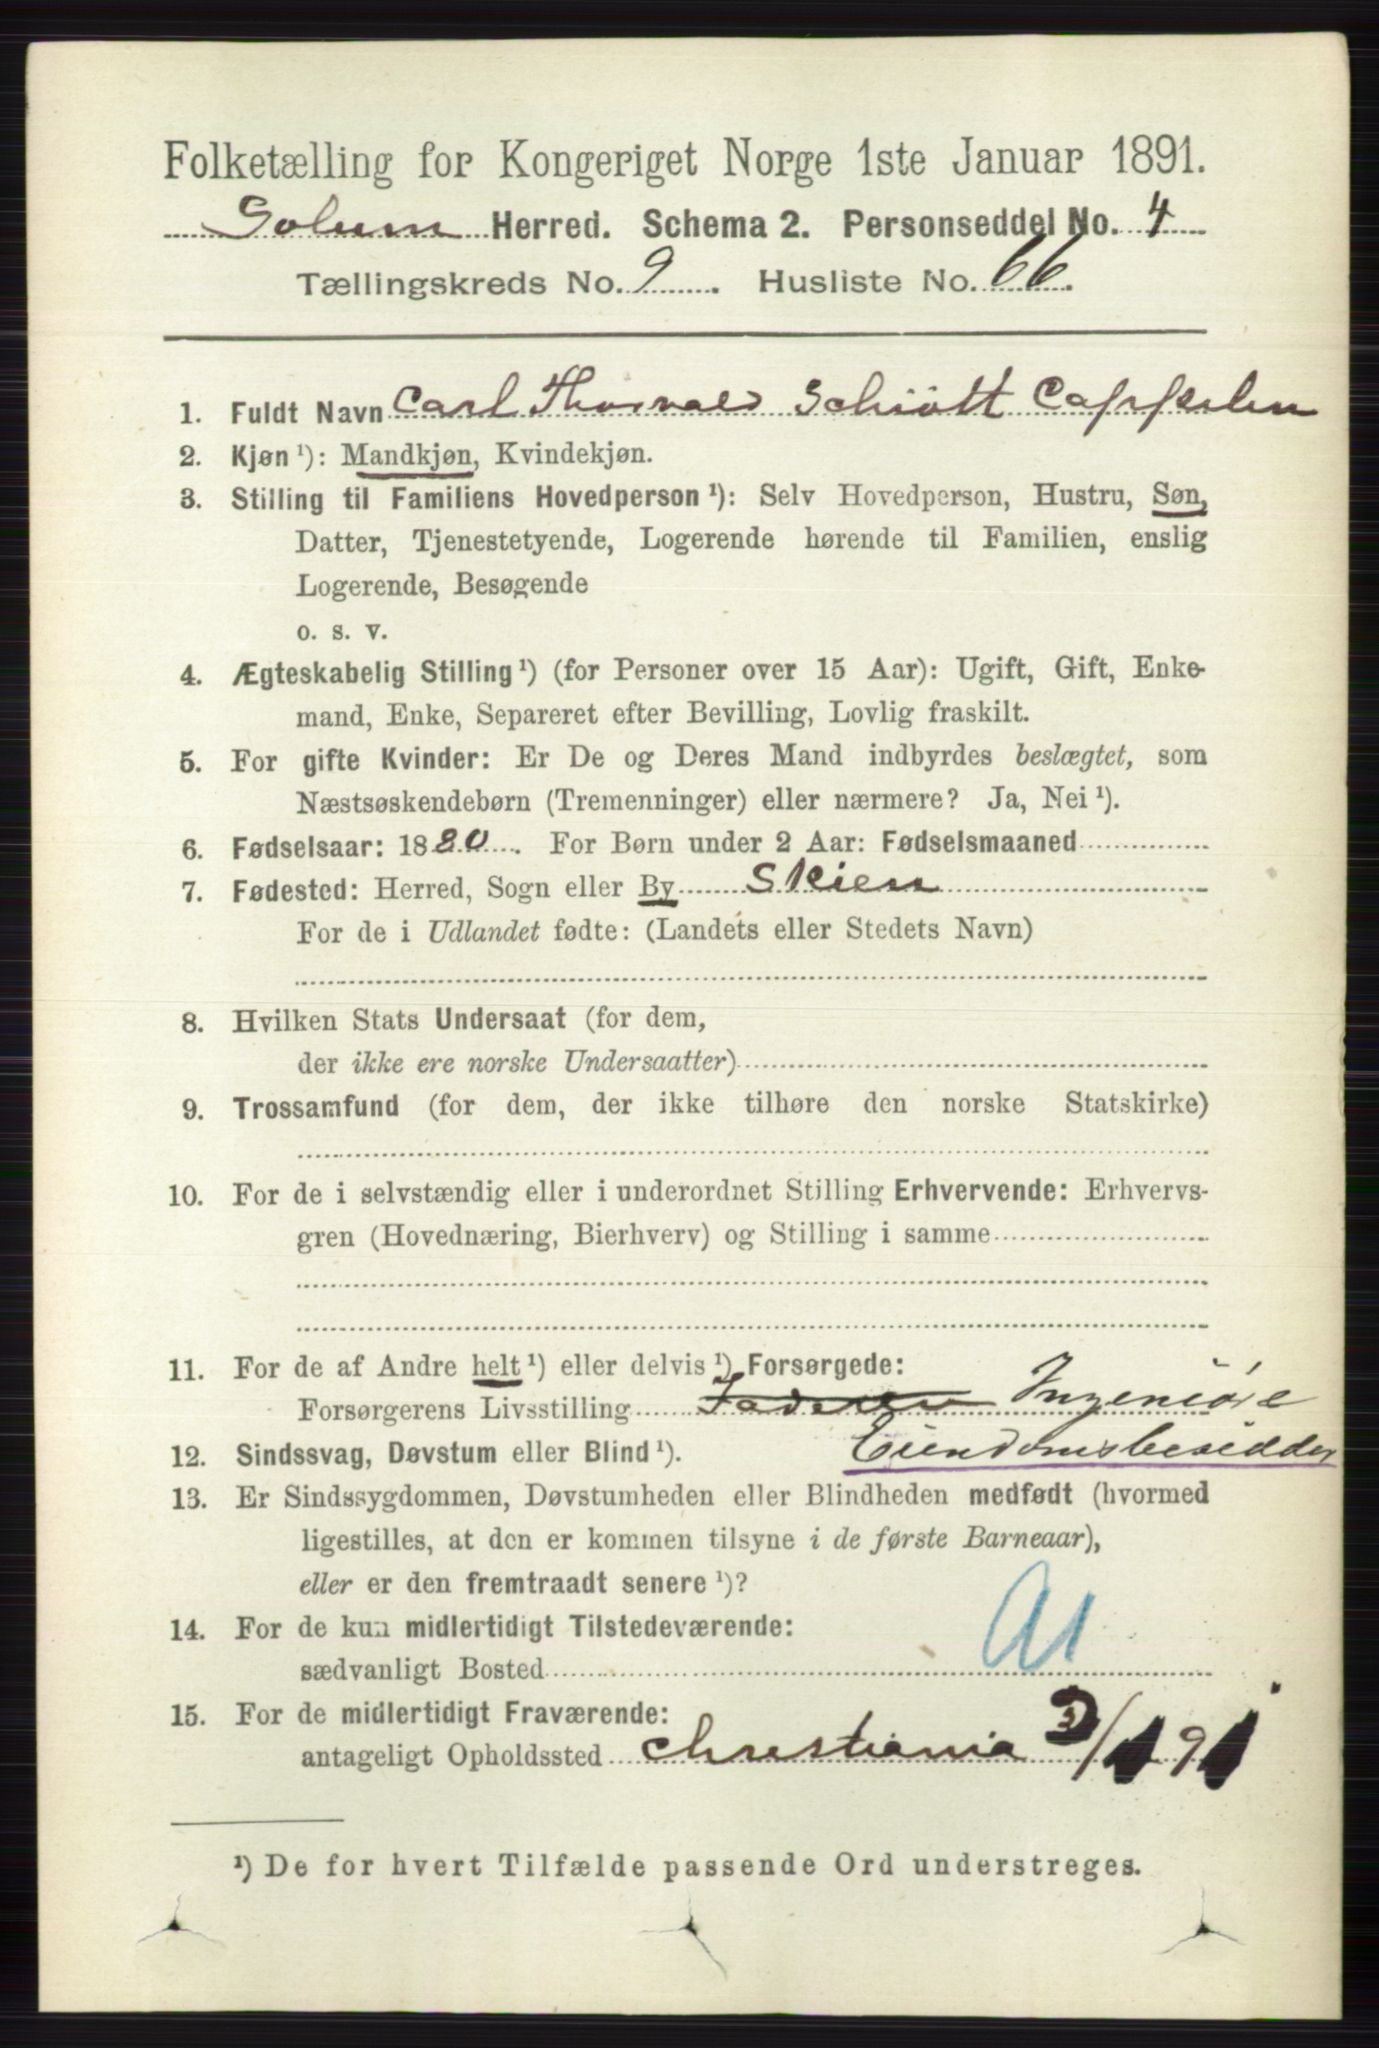 Folketælling for Kongeriget Norge 1ste Januar 1891.
Solum Herred. Schema 2. Personseddel No. 4
Tællingskreds No. 9. Husliste No. 66.
1. Fuldt Navn Carl Thorvald Schiött Cappelen
2. Kjøn ¹): Mandkjøn, Kvindekjøn.
3. Stilling til Familiens Hovedperson ¹): Selv Hovedperson, Hustru, Søn,
Datter, Tjenestetyende, Logerende hørende til Familien, enslig
Logerende, Besøgende
o. s. v.
4. Ægteskabelig Stilling ¹) (for Personer over 15 Aar): Ugift, Gift, Enke-
mand, Enke, Separeret efter Bevilling, Lovlig fraskilt.
5. For gifte Kvinder: Er De og Deres Mand indbyrdes beslægtet, som
Næstsøskendebørn (Tremenninger) eller nærmere? Ja, Nei ¹).
6. Fødselsaar: 1880. For Børn under 2 Aar: Fødselsmaaned
7. Fødested: Herred, Sogn eller By Skien
For de i Udlandet fødte: (Landets eller Stedets Navn)
8. Hvilken Stats Undersaat (for dem,
der ikke ere norske Undersaatter)
9. Trossamfund (for dem, der ikke tilhøre den norske Statskirke)
10. For de i selvstændig eller i underordnet Stilling Erhvervende: Erhvervs-
gren (Hovednæring, Bierhverv) og Stilling i samme
11. For de af Andre helt ¹) eller delvis ¹) Forsørgede:
Forsørgerens Livsstilling Faderen Ingeniöre
Eiendomsbesidder
12. Sindssvag, Døvstum eller Blind ¹).
13. Er Sindssygdommen, Døvstumheden eller Blindheden medfødt (hvormed
ligestilles, at den er kommen tilsyne i de første Barneaar),
eller er den fremtraadt senere ¹)?
14. For de kun midlertidigt Tilstedeværende:
sædvanligt Bosted
15. For de midlertidigt Fraværende:
antageligt Opholdssted Christiania
¹) De for hvert Tilfælde passende Ord understreges.